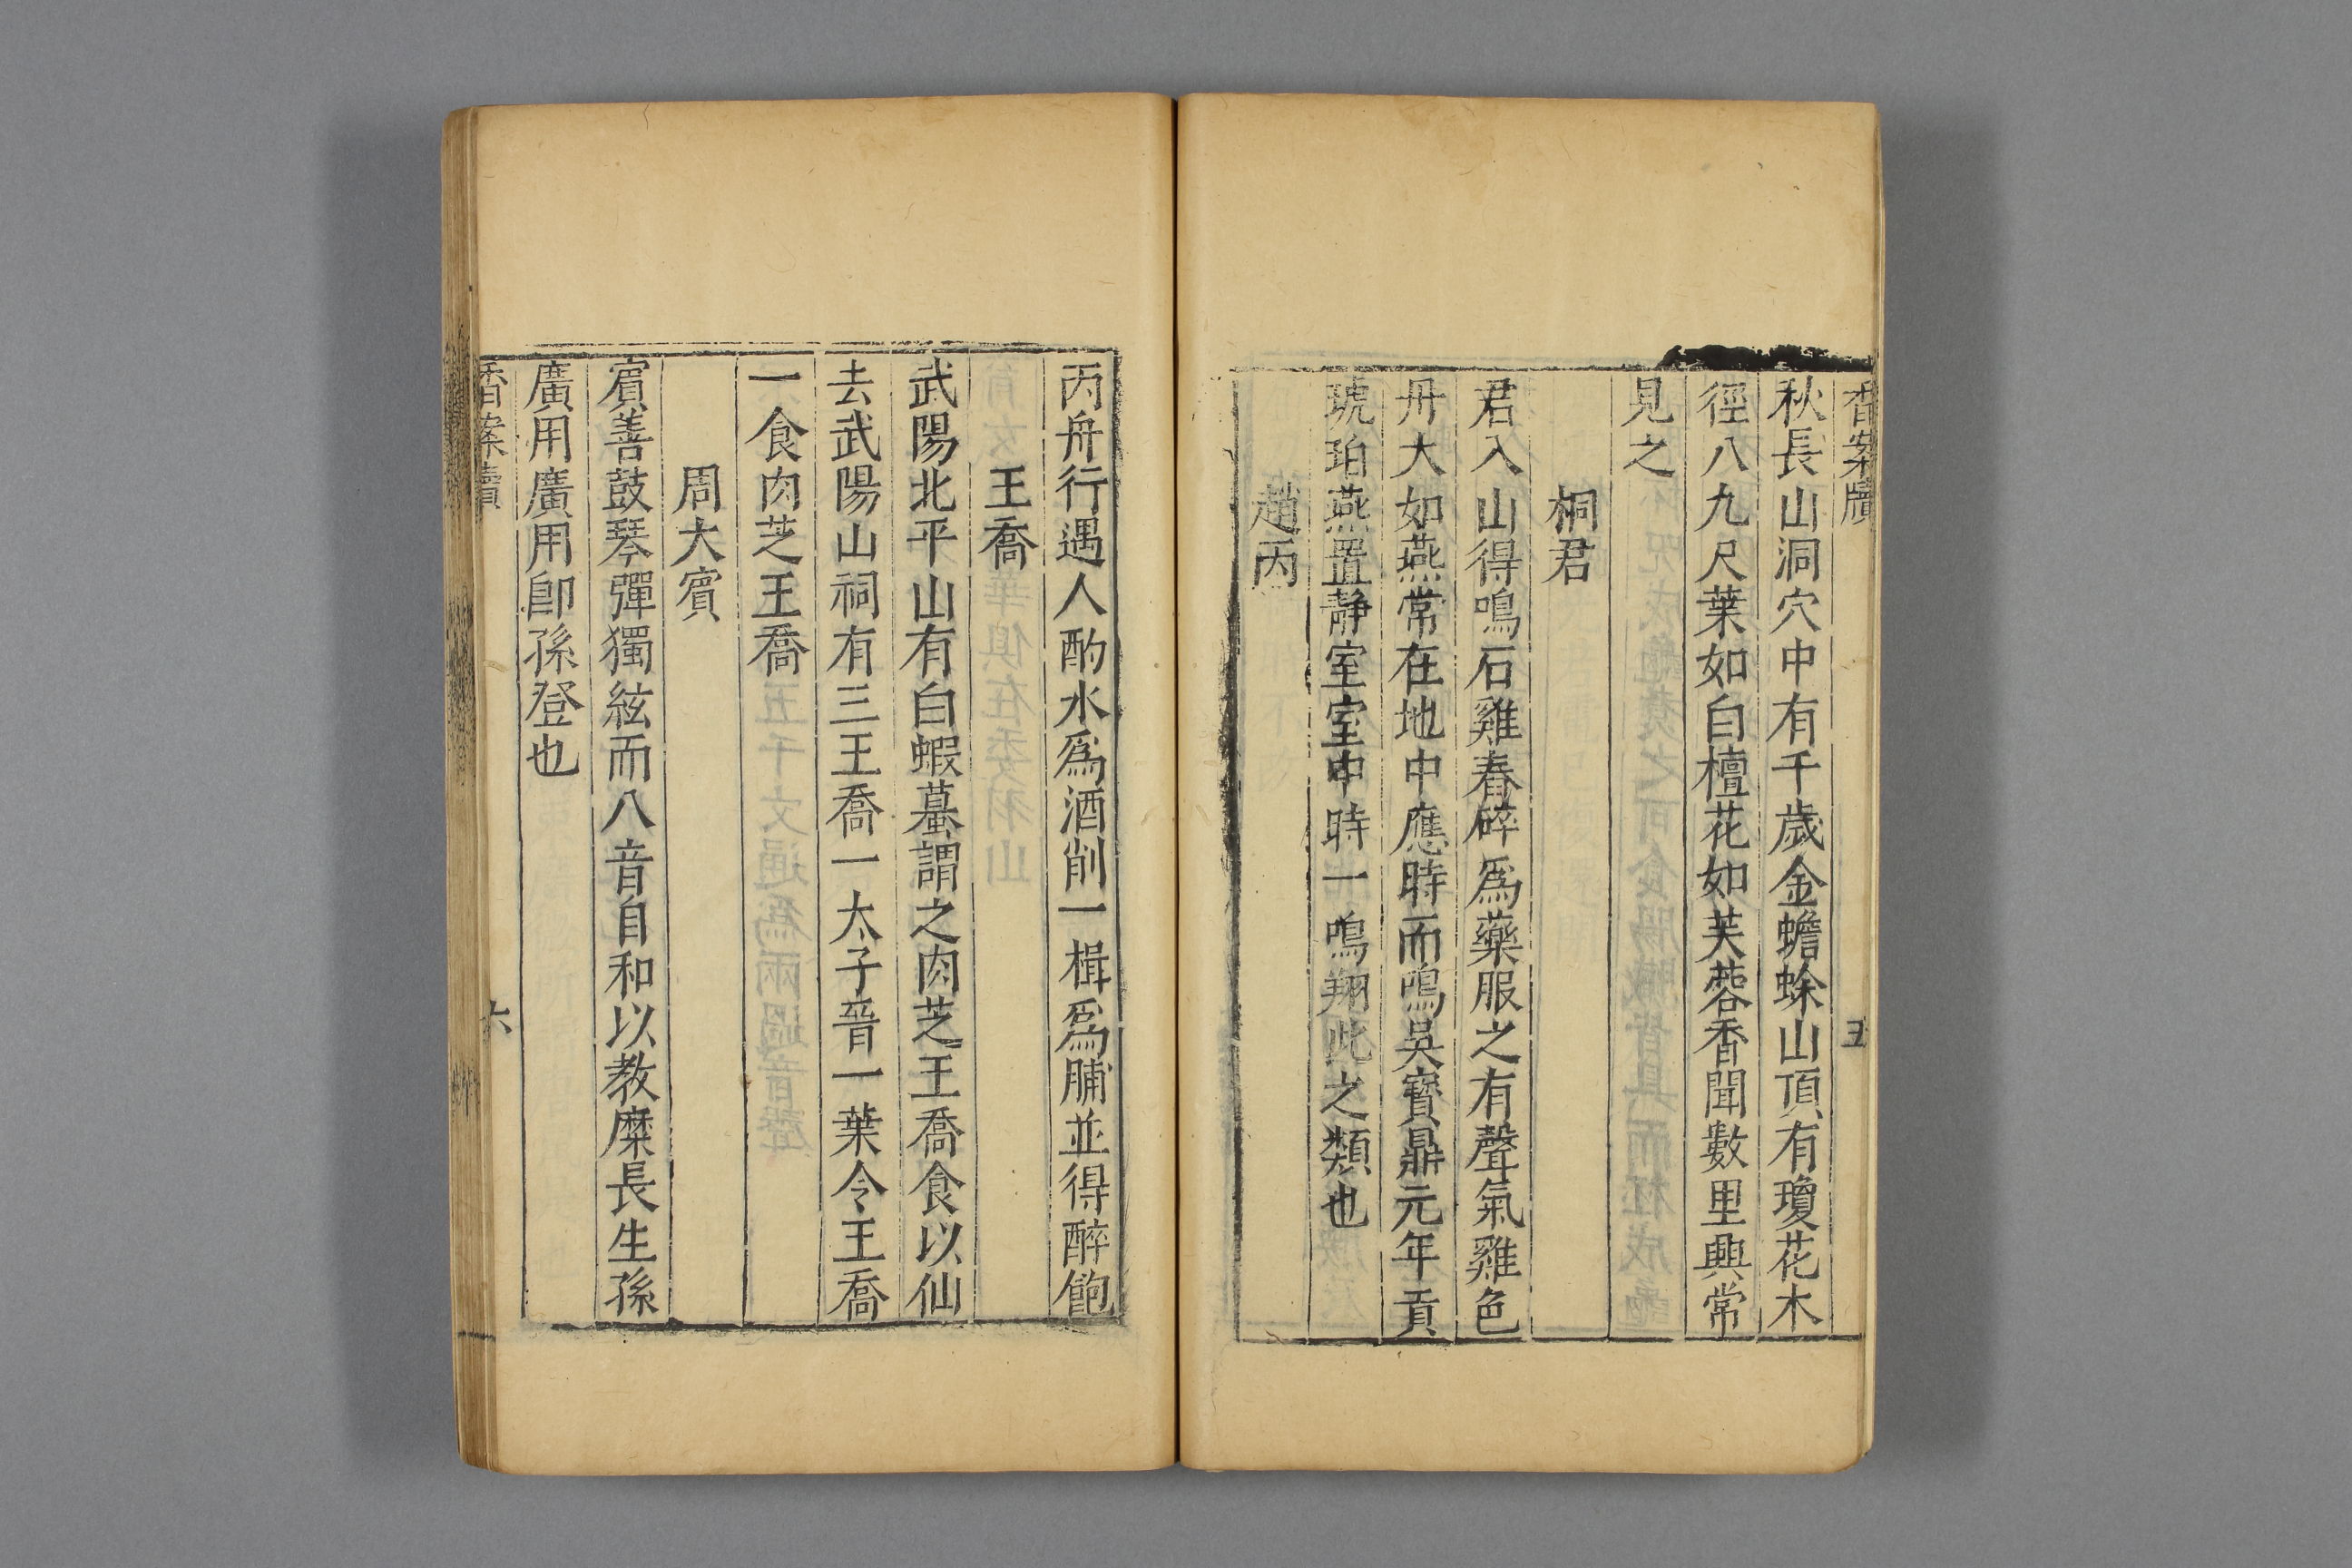 香案牘 五
秋長山洞穴中有千歲金蟾蜍山頂有瓊花木
徑八九尺葉如白檀花如芙蓉香聞數里興常
見之
桐君
君入山得鳴石雞舂碎爲藥服之有聲氣雞色
丹大如燕常在地中應時而鳴吳寶鼎元年貢
琥珀燕置靜室室中時一鳴翔此之類也
趙丙
丙舟行遇人酌水爲酒削一楫爲脯並得醉飽
王喬
武陽北平山有白蝦蟇謂之肉芝王喬食以仙
去武陽山祠有三王喬一太子晉一葉令王喬
一食肉芝王喬
周大賓
賓善鼓琴彈獨絃而八音自和以教糜長生孫
廣用廣用卽孫登也
香案牘 六